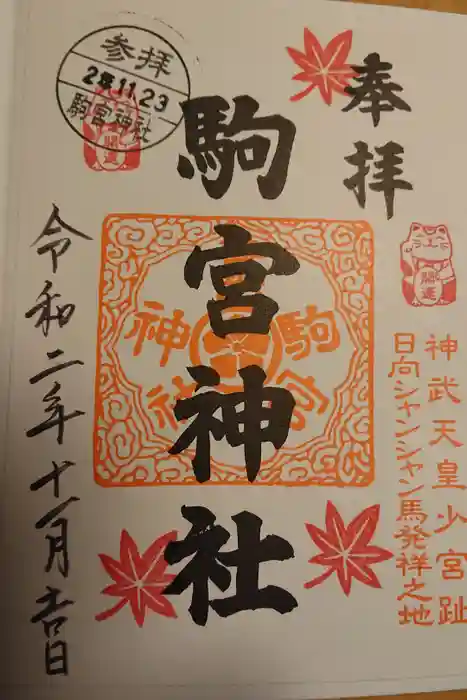 奉拝
神武天皇少宮趾
日向シャンシャン馬発祥之地
開運
駒宮神社
駒宮
神社
参拝
2年11.23
駒宮神社
開運
令和二年十一月吉日